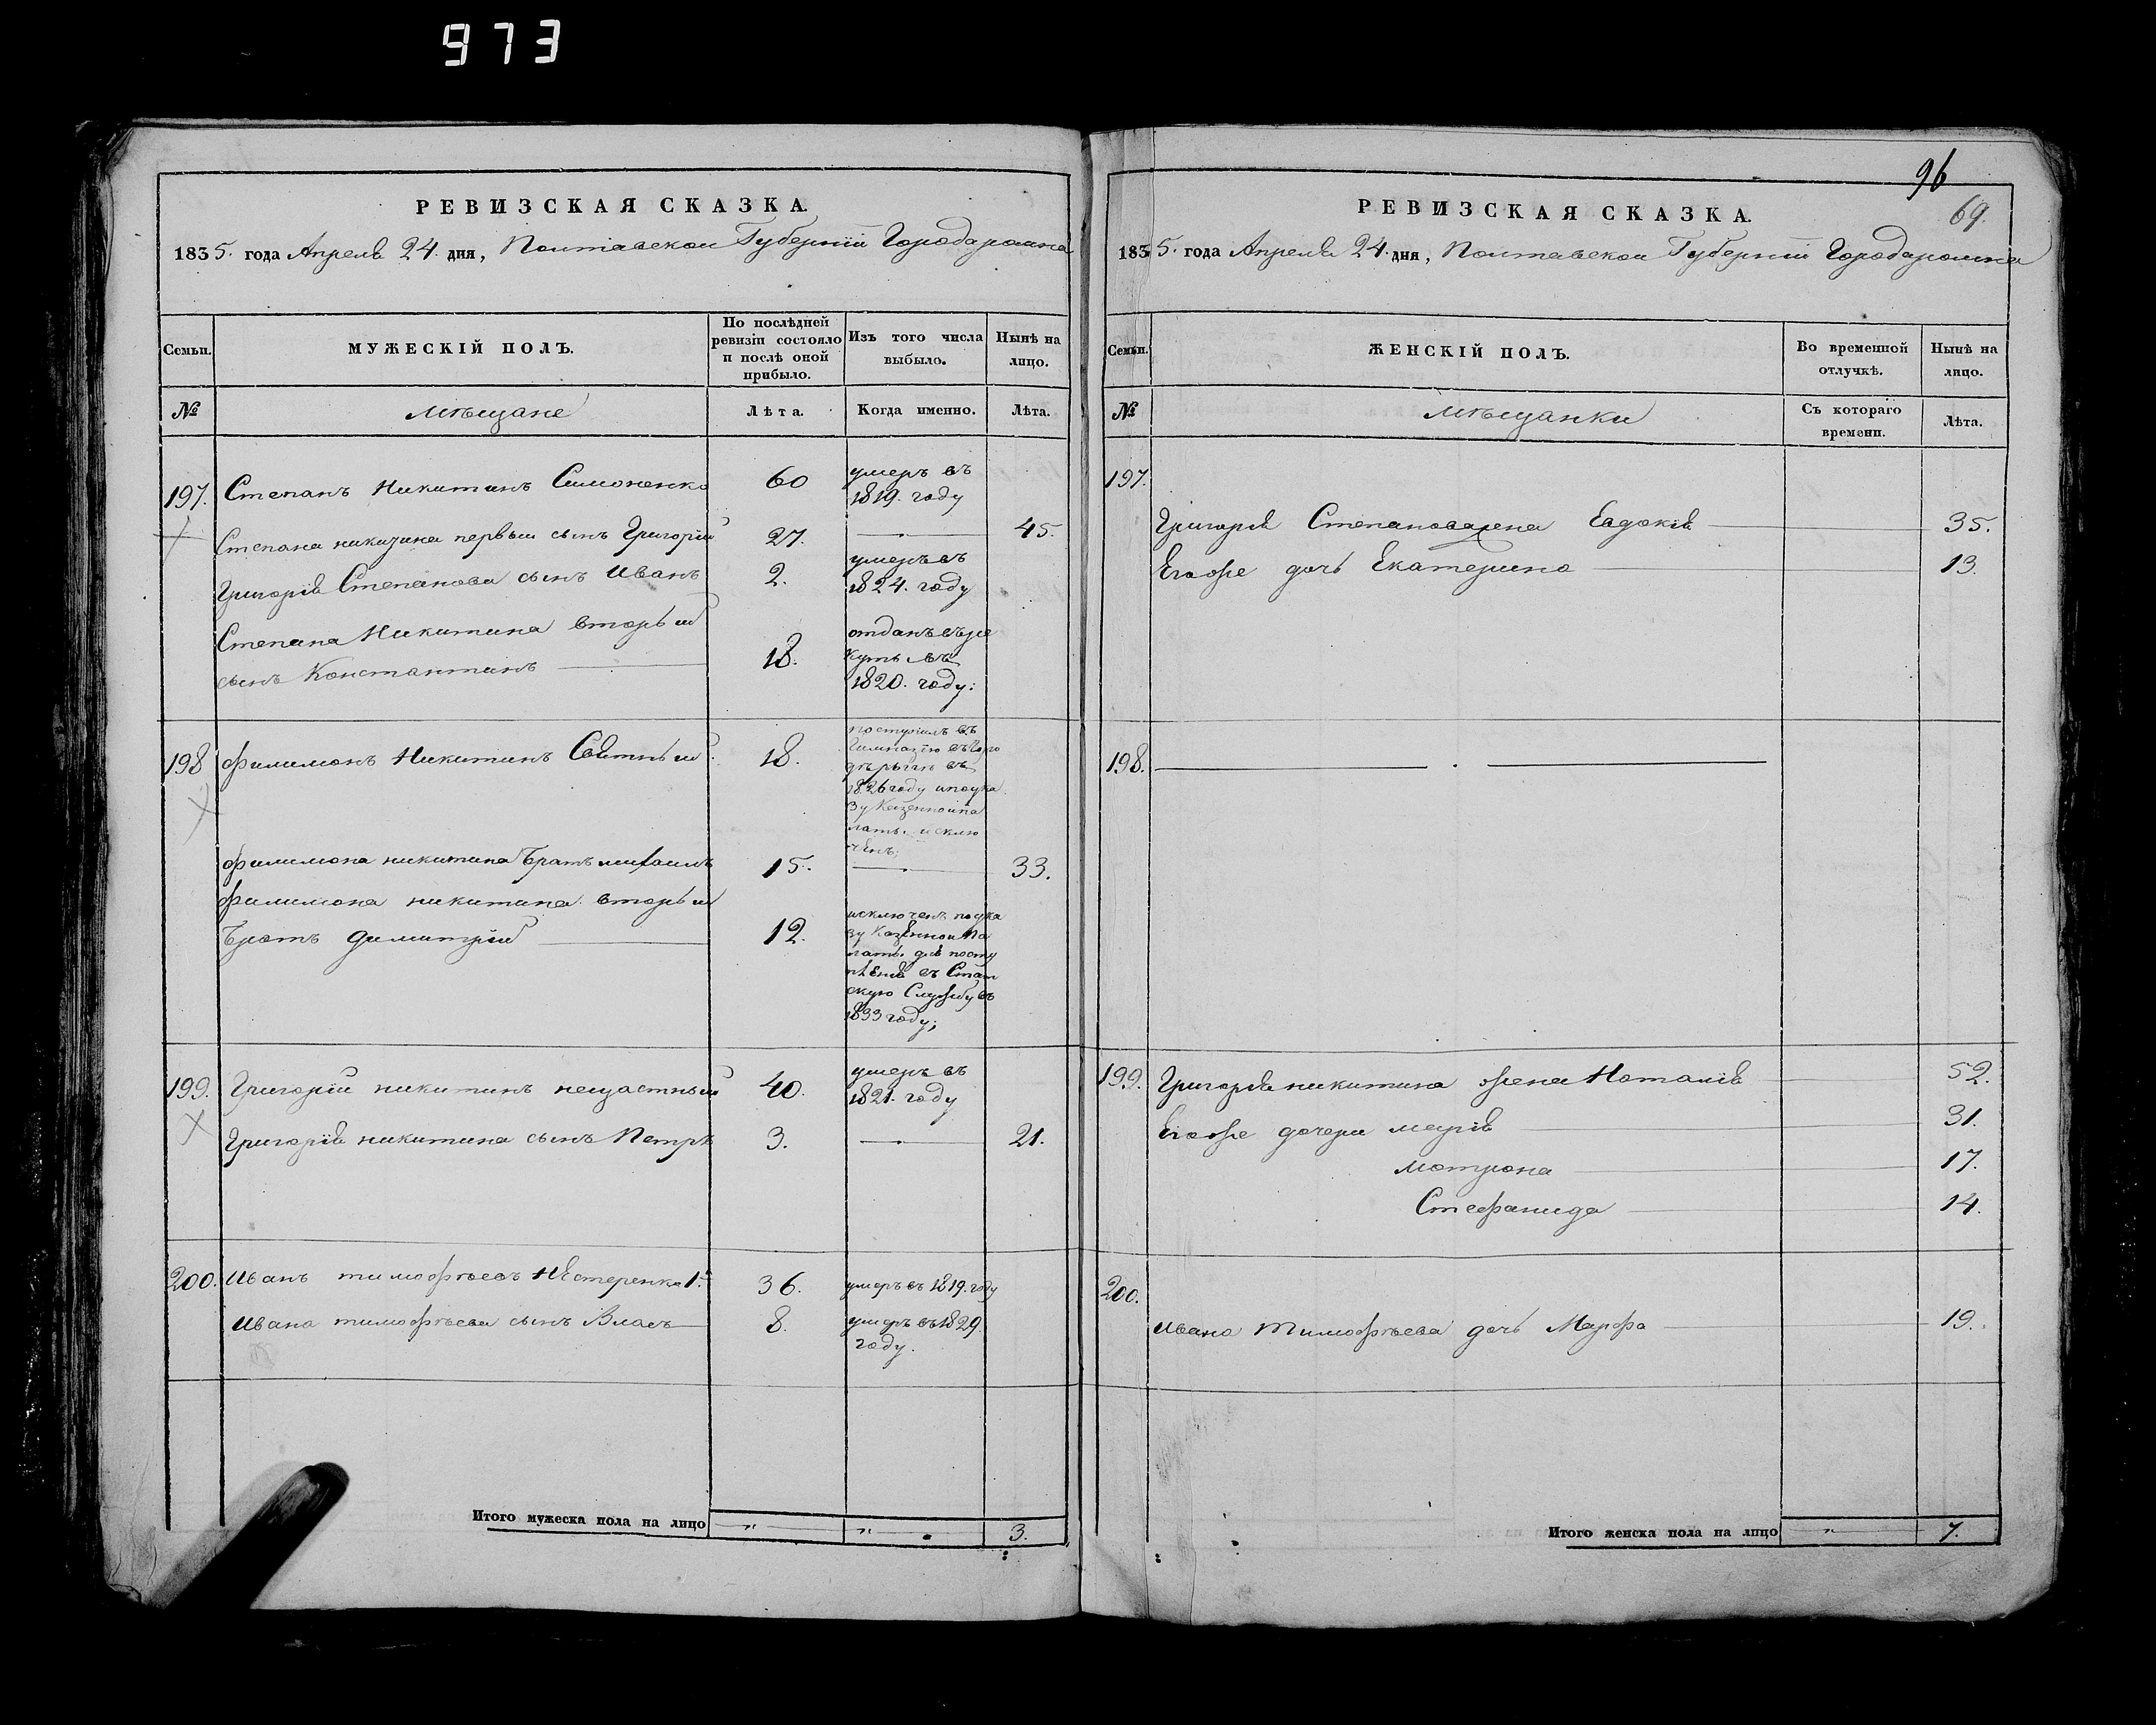 973
РЕВИЗСКАЯ СКАЗКА.
1835. года Апреля 24. дня, Полтавской Губерніи Города ромна
Семьи.
МУЖЕСКІЙ ПОЛЪ.
По послѣдней
ревизіи состояло
и послѣ оной
прибыло.
Изъ того числа
выбыло.
Нынѣ на
лицо.
№
мѣщане
Лѣта.
Когда именно.
Лѣта.
197. Степанъ Никитинъ Симоненко 60 умеръ въ
1819. году
Степана никитина первый сынъ Григорій 27. 45.
Григорія Степанова сынъ Иванъ 2. умеръ въ
1824. году
Степана Никитина вторый
сынъ Константинъ 18. отданъ въ ре
куты въ
1820. году:
198 филимонъ Никитинъ 18. поступилъ въ
Гимназію въ Горо
въ
1826 году и по ука
зу Казенной па
латы исклю
ченъ;
филимона никитина братъ михаилъ 15. 33.
филимона никитина вторый
братъ Димитрій 12. исключенъ по ука
зу Казенной Па
латы для посту
пленія въ Стат
скую Службу въ
1833 году;
199. Григорій никитинъ нещастный 40. умеръ въ
1821. году
Григорія никитина сынъ Петръ 3. 21.
200. Иванъ тимофѣевъ Нестеренко 1й 36. умеръ въ 1819. году
Ивана тимофѣева сынъ Власъ 8. умеръ въ 1829.
году.
Итого мужеска пола на лицо „ „ 3.
96
69.
РЕВИЗСКАЯ СКАЗКА.
1835. года Апреля 24. дня, Полтавской Губерніи Города ромна
Семьи.
ЖЕНСКІЙ ПОЛЪ.
Во временной
отлучкѣ.
Нынѣ на
лицо.
№
мѣщанки
Съ котораго
времени.
Лѣта.
197.
Григорія Степанова жена Евдокія 35.
Егоже дочь Екатерина 13.
198.
199. Григорія никитина жена Наталія 52.
Егоже дочери марія 31.
мотрона 17.
Стефанида 14.
200.
Ивана Тимофѣева дочь Марфа 19.
Итого женска пола на лицо „ 7.